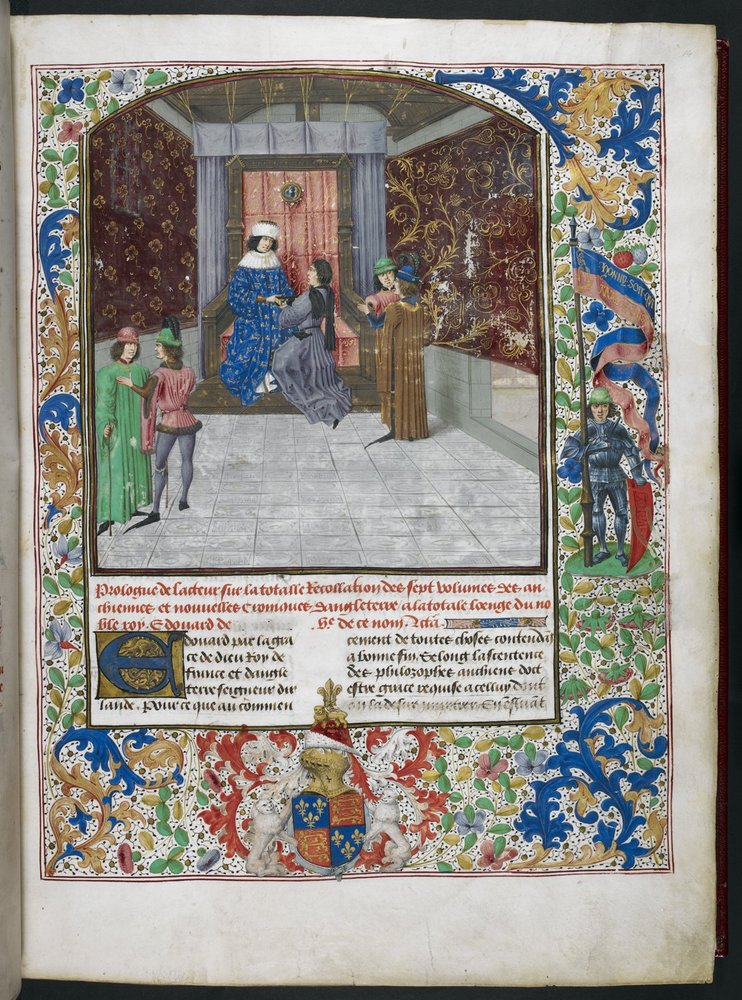 HONNY SOIT QVI
Prologue de lacteur sur la totalle Recollation des sept volumes des an
chiennes et nouuelles Cronicques dangleterre a la totale loenge du no
ble roy Edouard de de ce nom
Edouard par la gra
ce de dieu Roy de
france et dangle
terre seigneur dir
lande. Pour ce que au commen
cement de toutes choses contendans
a bonne fin. Selong la sentence
des philozophes anchiens doct
estre grace requise a celluy dont